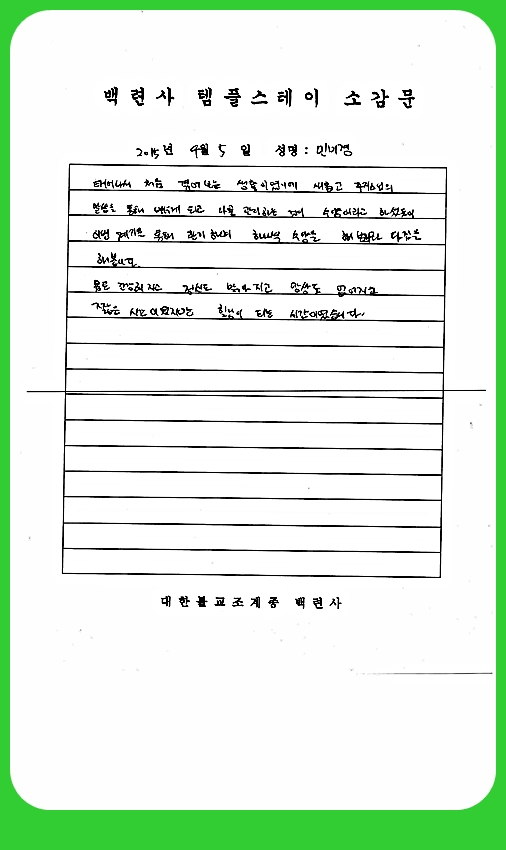 백련사 템플스테이 소감문
2015년 9월 5일 성명 : 민미경
태어나서 처음 겪어보는 생활이었기에 새롭고 주지스님의
말씀을 통해 되고 나를 관리하는 것이 수행이라고 하셨듯이
이번 계기를 통해 관리하며 하나씩 수행을 해보리라 다짐을
해봅니다.
몸은 건강해지고 정신도 맑아지고 망상도 없어지고
짧은 시간이었지만 힐링이 되는 시간이었습니다.
대한불교조계종 백련사